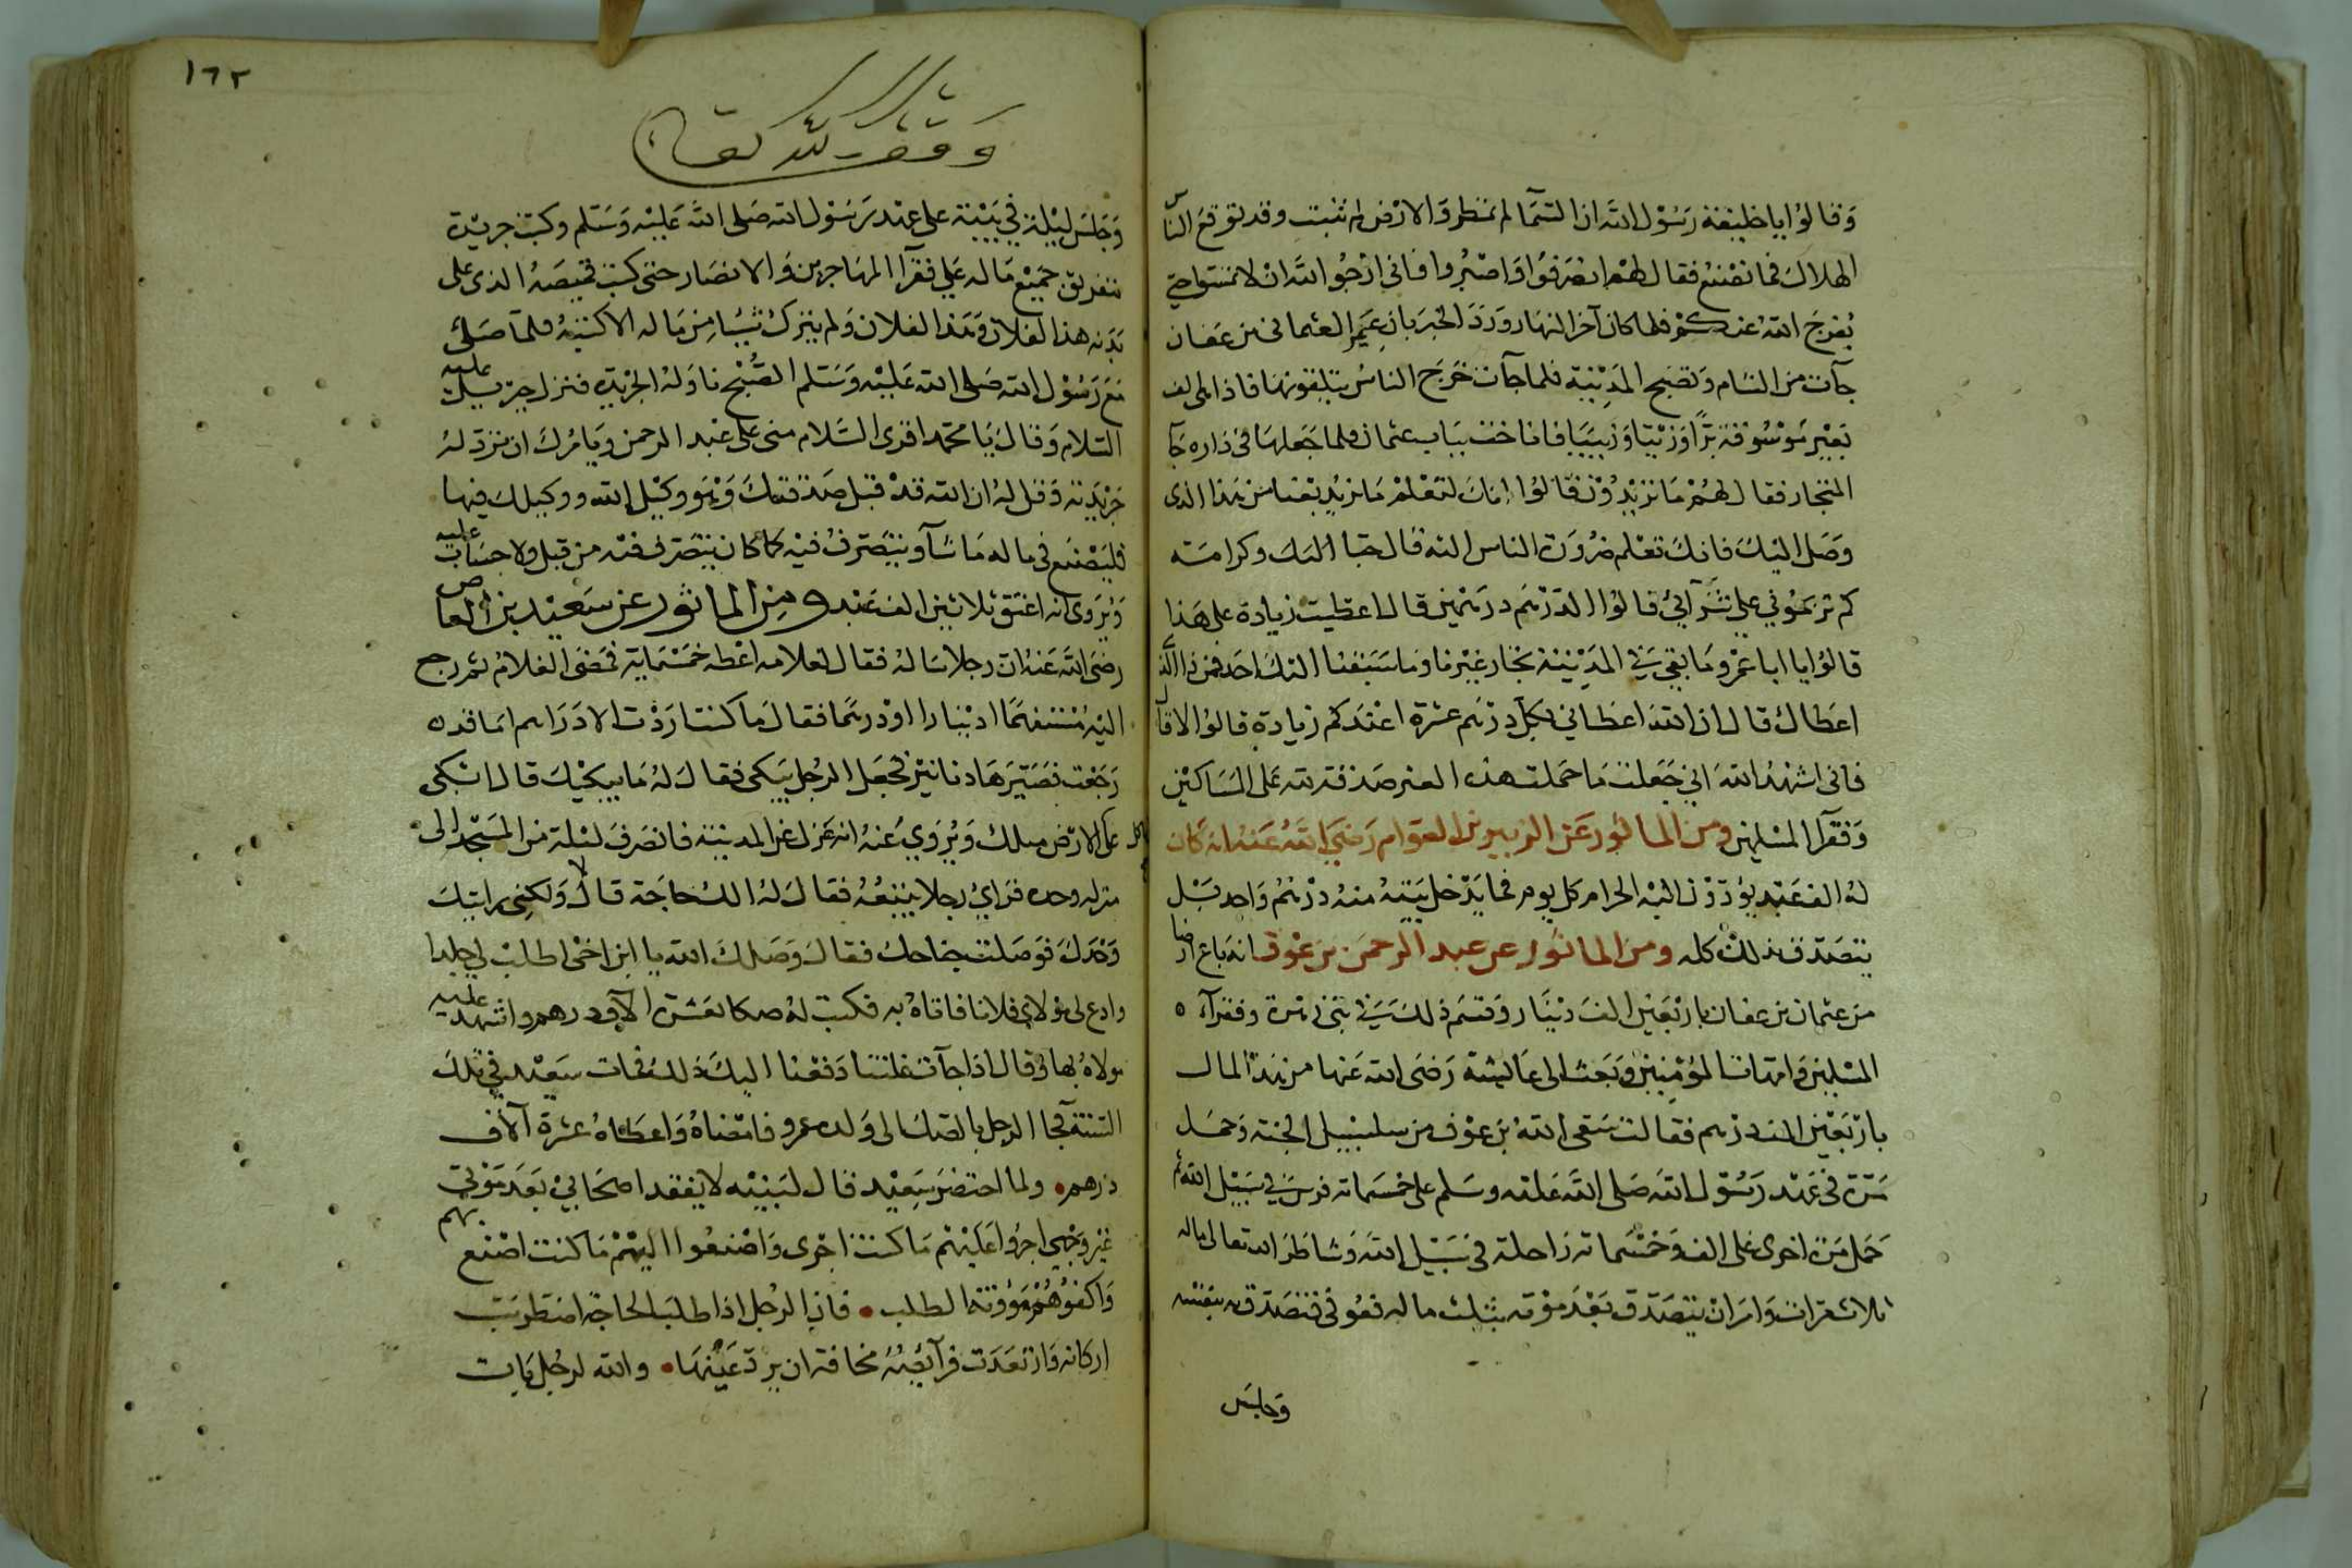 وقالوا يا خليفة رسول الله ان السما لم تمطر والارض لم تنبت وقد توقع الناس
الهلاك فما نصنع فقال لهم انصرفوا واصبروا فاني ارجوا الله ان لا تمسوا حتى
يفرج الله عنكم فلما كان آخر النهار ورد الخبر بان عير العثمان بن عفان
جآت من الشام وتصبح المدينة فلما جآت خرج الناس يتلقونها فاذا هى الف
بعير موسوقة برا وزيتا وزبيبا فاناخت بباب عثمان فلما جعلها في داره جآ
التجار فقال لهم ما تريدون قالوا انك لتعلم ما نريد بعنا من هذا الذى
وصل اليك فانك تعلم ضرورة الناس اليه قال حبا اليك وكرامة
كم تربحوني على شرآئي قالوا الدرهم درهمين قال اعطيت زيادة على هذا
قالوا يا ابا عمرو ما بقي في المدينة تجار غيرنا وما سبقنا اليك احد فمن ذا الذى
اعطاك قال ان الله اعطاني بكل درهم عشرة اعندكم زيادة قالوا لا قال
فانى اشهد الله اني جعلت ما حملت هذه العير صدقة لله على المساكين
وفقرآ المسلمين ومن الماثور عن الزبير بن العوام رضي الله عنه انه كان
له الف عبد يؤدون اليه الخراج كل يوم فما يدخل بيته منه درهم واحد بل
يتصدق بذلك كله ومن الماثور عن عبد الرحمن بن عوف انه باع ارضا
من عثمان بن عفان باربعين الف دينار وقسم ذلك في بني زهرة وفقرآء
المسلمين وامهات المؤمنين وبعث الى عايشة رضى الله عنها من هذا المال
باربعين الف درهم فقالت سقى الله بن عوف من سلسبيل الجنة وحمل
مرة في عهد رسول الله صلى الله عليه وسلم على خمسماية فرس في سبيل الله ثم
حمل مرة اخرى على الف وخمسماية راحلة في سبيل الله وشاطر الله تعالى ماله
ثلاث مرات وامر ان يتصدق بعد موته بثلث ماله فعوفي فتصدق به بنفسه
وجلس
١٦٢
وقف لله تعالى
وجلس ليلة في بيته على عهد رسول الله صلى الله عليه وسلم وكتب جريدة
بتفريق جميع ماله على فقرآ المهاجرين والانصار حتى كتب قميصه الذى على
بدنه هذا لفلان وهذا لفلان ولم يترك شيا من ماله الا كتبه فلما صلى
مع رسول الله صلى الله عليه وسلم الصبح ناوله الجريدة فنزل جبريل عليه
السلام وقال يا محمد اقرى السلام منى على عبد الرحمن ويامرك ان ترد له
جريدته وقل له ان الله قد قبل صدقتك وهو وكيل الله ووكيلك فيها
فليصنع في ماله ما شآ ويتصرف فيه كما كان يتصرف فيه من قبل ولا حساب عليه
ويروى انه اعتق ثلاثين الف عبد ومن الماثور عن سعيد بن العاص
رضى الله عنه ان رجلا ساله فقال لغلامه اعطه خمسماية فمضى الغلام ثم رجع
اليه مستفهما دينارا او درهما فقال ما كنت اردت الا دراهم اما قد
رجعت فصيرها دنانير فجعل الرجل يبكى فقال له ما يبكيك قال ابكى
على الارض مثلك ويروي عنه انه عزل عن المدينة فانصرف ليلة من المسجد الى
منزله وحده فراي رجلا يتبعه فقال له الك حاجة قال لا ولكني رايتك
وحدك فوصلت جناحك فقال وصلك الله يا ابن اخى اطلب لي جلدا
وادع لى مولاي فلانا فاتاه به فكتب له صكا بعشرة الآف درهم واشهد عليه
مولاه بها وقال اذا جآت غلتنا دفعنا اليك ذلك فمات سعيد في تلك
السنة فجا الرجل بالصك الى ولده عمرو فامضاه واعطاه عشرة آلاف
درهم ولما احتضر سعيد قال لبنيه لا يفقد اصحابي بعد موتي
غير وجهي اجروا عليهم ما كنت اجرى واصنعوا اليهم ما كنت اصنع بهم
واكفوهم مؤونة الطلب فان الرجل اذا طلب الحاجة اضطربت
اركانه وارتعدت فرآئصه مخافة ان يرد عنها والله لرجل بات